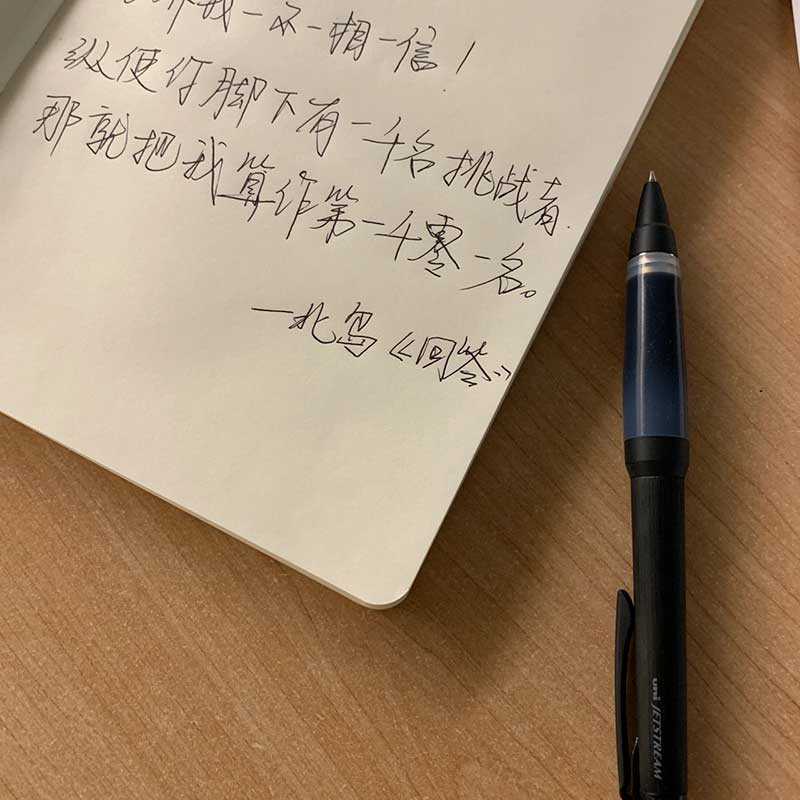 我一不一相一信！
纵使你脚下有一千名挑战者.
那就把我算作第一千零一名。
—北岛《回答》
uni JETSTREAM